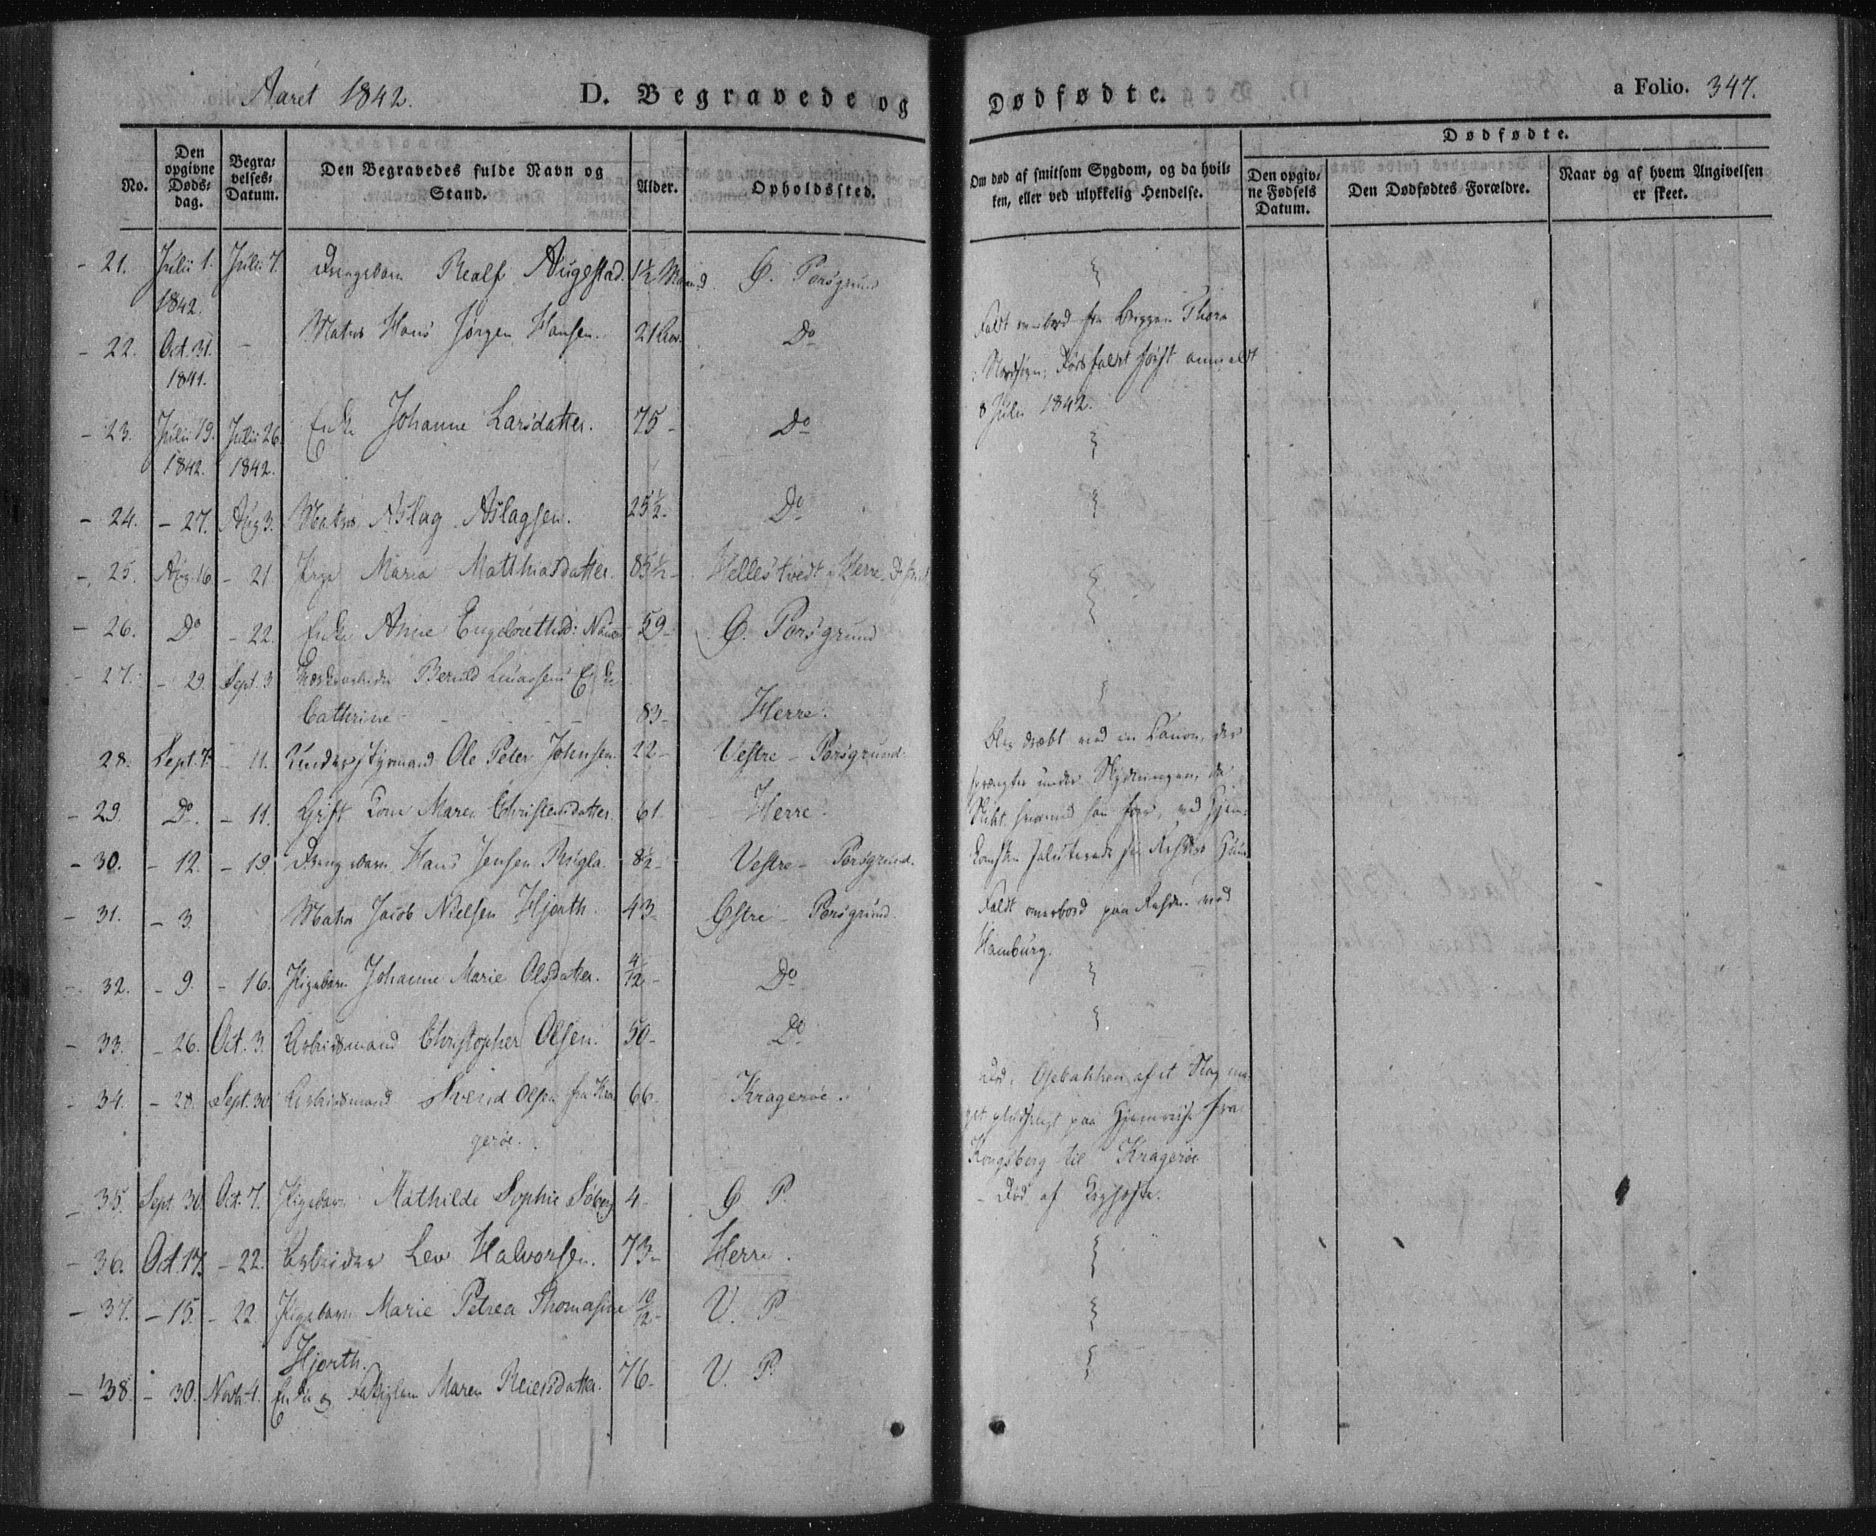 Aaret 1842. D. Begravede og Dødfødte. a Folio. 347.
Dødfødte.
No. Den opgivne Døds-dag. Begra-velses-Datum. Den Begravedes fulde Navn og Stand. Alder. Opholdssted. Om død af smitsom Sygdom, og da hvil-ken, eller ved ulykkelig Hendelse. Den opgiv-ne Fødsels Datum. Den Dødfødtes Forældre. Naar og af hvem Angivelsen er skeet.
- 21. Julii 1. 1842. Julii 7. Drengebarn Realf Augestad. 1½ Maaned Ø. Porsgrund
- 22. Oct. 31. 1841. - Matros Hans Jørgen Hansen. 21 Aar. Do Faldt overbord fra Briggen Thora
i Nordsøen, Dødsfaldet først anmeldt
8 Julii 1842.
- 23. Julii 19. 1842. Julii 26. 1842. Enke Johanne Larsdatter. 75 - Do
- 24. - 27. Aug 3. Matros Aslag Aslagsen. 25½ - Do
- 25. Aug. 16 - 21 Pige Maria Matthiasdatter. 85½ - Hellestvedt Herre
- 26. Do - 22. Enke Anne Engebrethsd: 59 - Ø. Porsgrund
- 27. - 29. Sept. 3 Enke
Cathrine - - - - 83 - Herre.
28. Sept. 7. - 11. Understyrmand Ole Peter Johnsen 22 - Vestre - Porsgrund. Blev dræbt ved en Canon, der
sprængtes under Skydningen, da
Skibet hvormed han foer, ved Hjem-
komsten saluterede
- 29. Do. - 11. Gift Kone Maren Christensdatter. 61 - Herre.
- 30. - 12. - 19. Drengebarn Hans Jensen Rugla. 8½ - Vestre - Porsgrund.
- 31. - 3. Matros Jacob Nielsen Hjorth. 43 - Østre - Porsgrund. Faldt overbord paa Reisen ved
Hamburg.
- 32. - 9. - 16. Pigebarn Johanne Marie Olsdatter. 4/12 - Do
- 33. - 26. Oct. 3. Arbeidsmand Christopher Olsen. 50 - Do
- 34. - 28. Sept. 30 Arbeidsmand Svend Olsen fra Kra
gerøe. 66 - Kragerøe. Død i Osebakken af et Slag
pludseligt paa Hjemreise fra
Kongsberg til Kragerøe
- 35. Sept. 30. Oct. 7. Pigebarn Mathilde Sophie 4 - Ø P. - Død af Kighoste.
- 36. Oct. 17. - 22. Arbeider Lev Halvorsen. 73 - Herre.
- 37. - 15. - 22. Pigebarn Marie Petrea Thomasine
Hjorth. 10/12 - V. P.
- 38. - 30. Novbr. 4. Enke og Fattiglem Maren Reiersdatter. 76 - V. P.